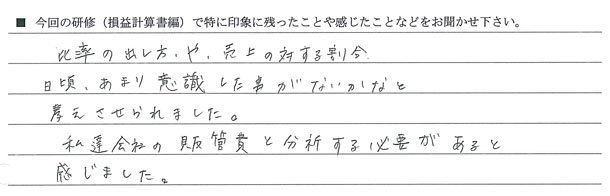 ■ 今回の研修（損益計算書編）で特に印象に残ったことや感じたことなどをお聞かせ下さい。
比率の出し方、や、売上の対する割合
日頃、あまり意識した事がないかなと
考えさせられました。
私達会社の販管費と分析する必要があると
感じました。